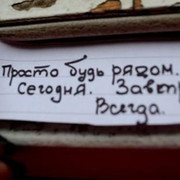 Просто будь рядом.
Сегодня. Завтр
Всегда.